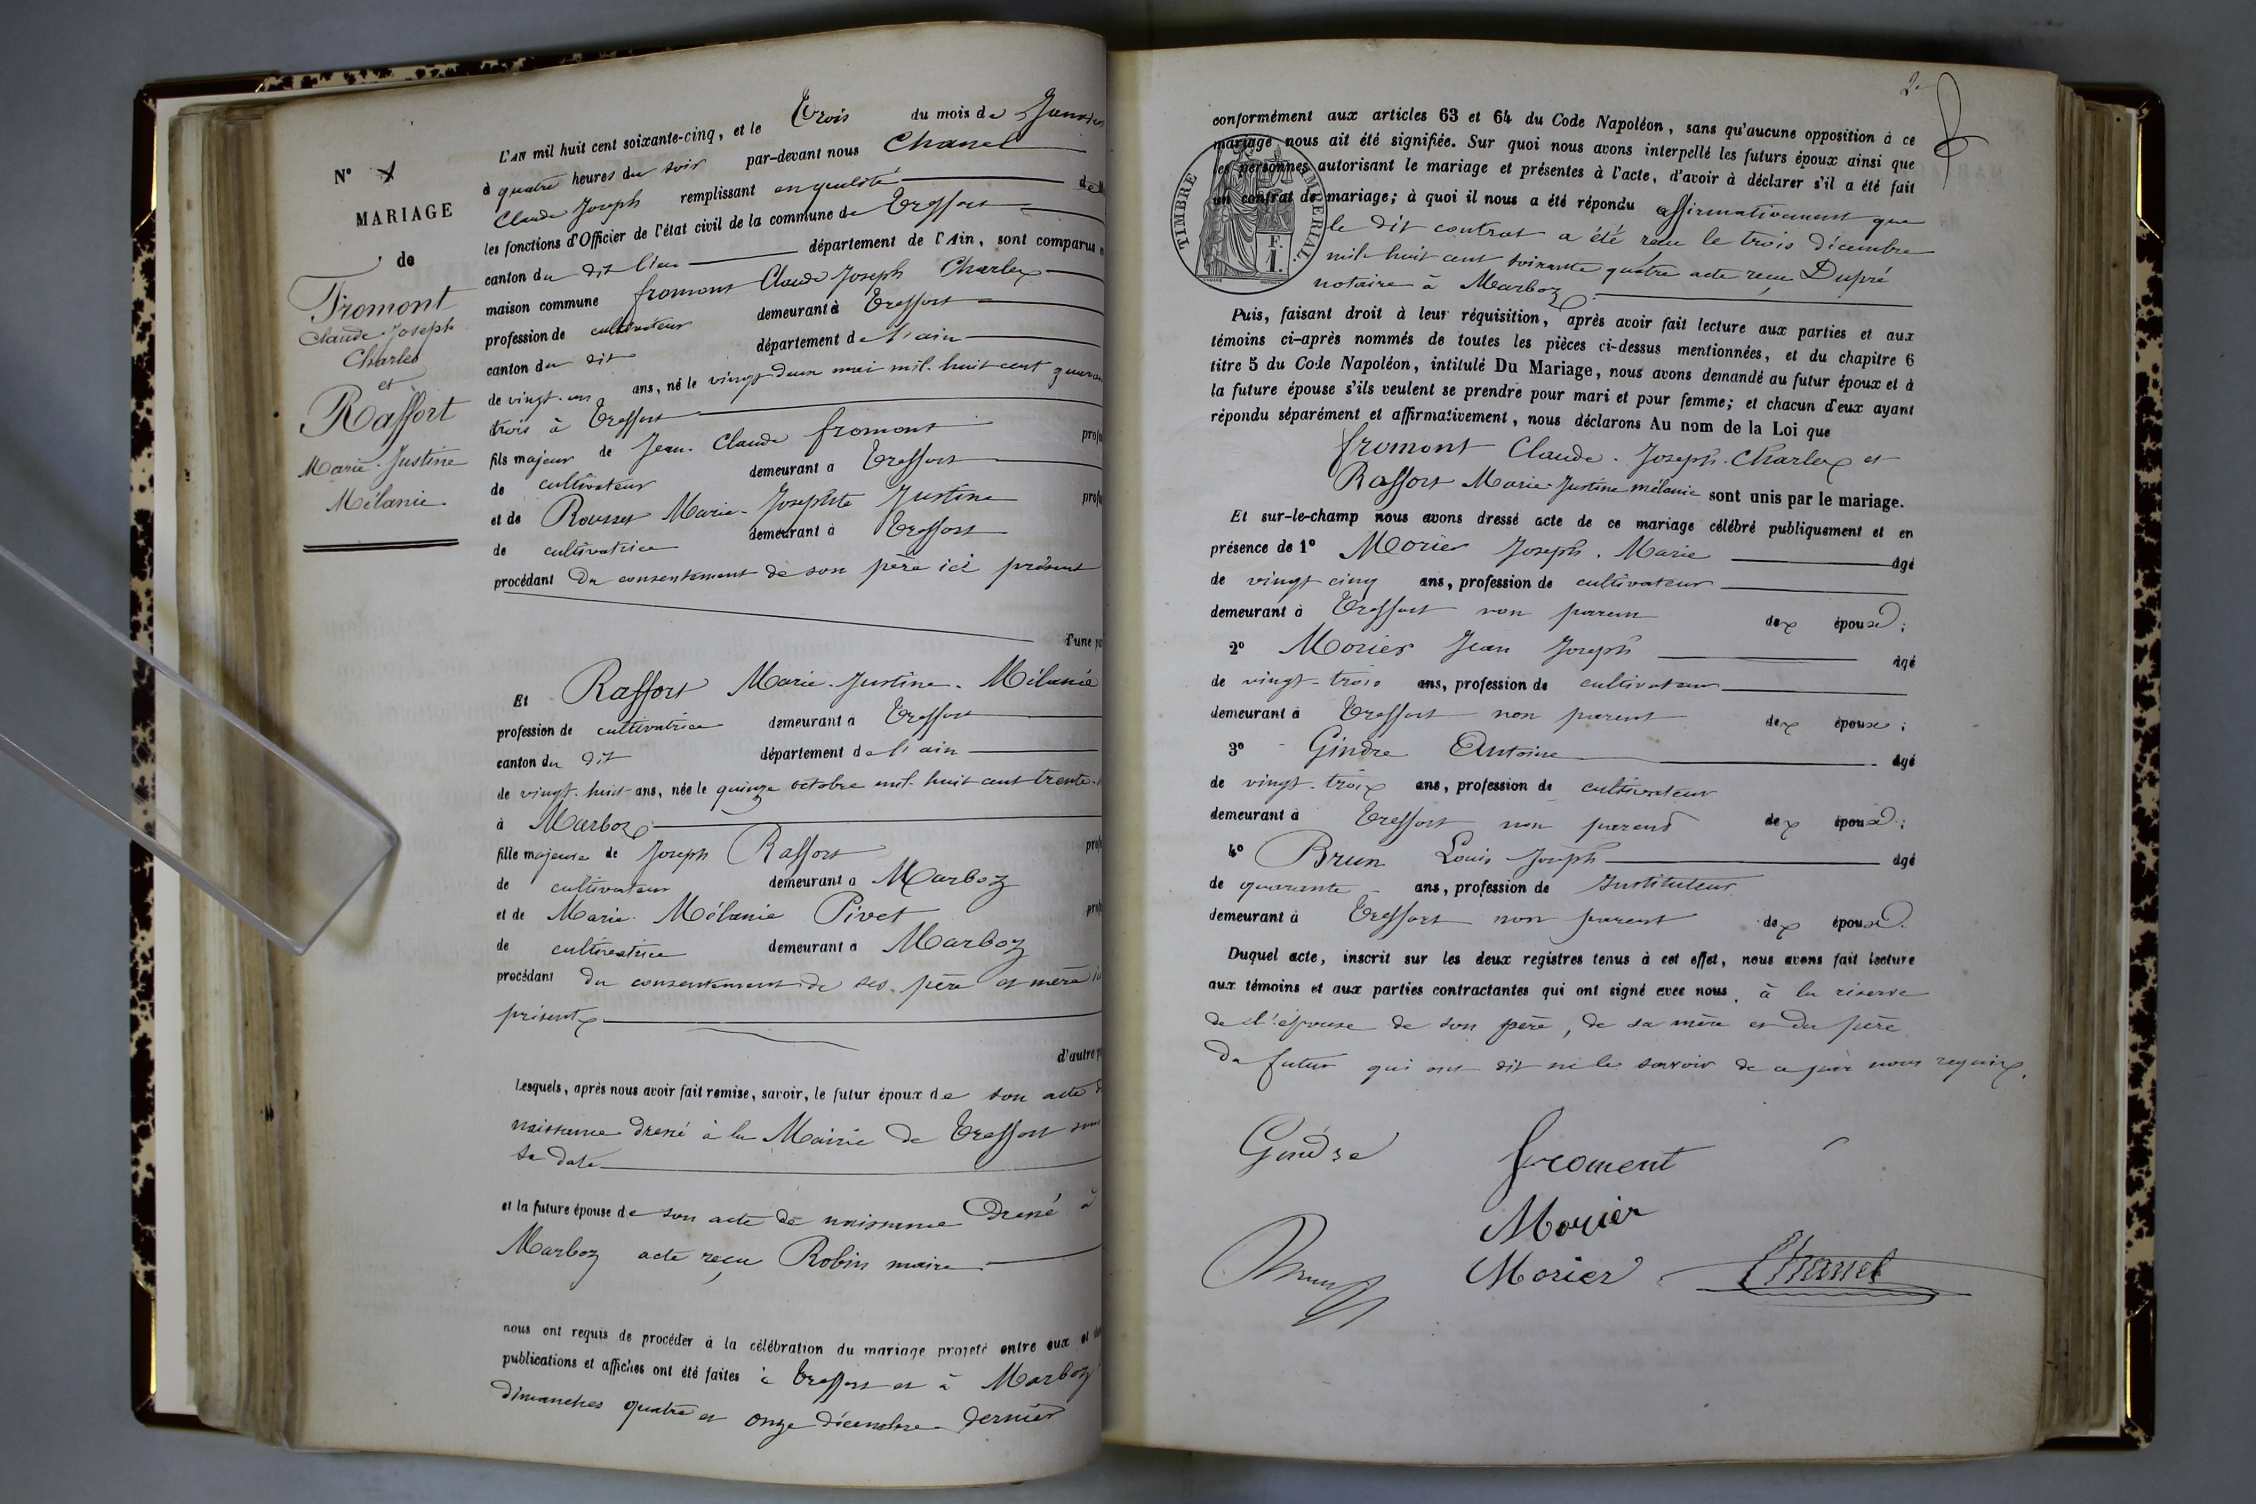 N° 1
MARIAGE
de
Fromont
Claude Joseph
Charles
et
Raffort
Marie-Justine
Mélanie
L'AN mil huit cent soixante-cinq, et le Trois du mois de Janvier
à quatre heures du soir par-devant nous Chanel
Claude Joseph remplissant en qualité de
les fonctions d'Officier de l'état civil de la commune de Treffort
canton du dit lieu département de l'Ain, sont comparus
maison commune fromont Claude Joseph Charles
profession de cultivateur demeurant à Treffort
canton du dit département de l'ain
de vingt-un ans, né le vingt deux mai mil huit cent quaran
trois à Treffort
fils majeur de Jean-Claude fromont prof
de cultivateur demeurant à Treffort
et de Rousset Marie-Josephte Justine prof
de cultivatrice demeurant à Treffort
procédant du consentement de son père ici présent
d'une pa
Et Raffort Marie-Justine-Mélanie
profession de cultivatrice demeurant à Treffort
canton du dit département de l'ain
de vingt-huit ans, née le quinze octobre mil huit cent trente-
à Marboz
fille majeure de Joseph Raffort prof
de cultivateur demeurant à Marboz
et de Marie Mélanie Pivet prof
de cultivatrice demeurant à Marboz
procédant du consentement de ses père et mère ici
présents
d'autre p
Lesquels, après nous avoir fait remise, savoir, le futur époux de son acte de
naissance dressé à la Mairie de Treffort sous
sa date
et la future épouse de son acte de naissance dressé à
Marboz acte reçu Robin maire
nous ont requis de procéder à la célébration du mariage projeté entre eux et
publications et affiches ont été faites à Treffort et à Marboz
dimanches quatre et onze décembre dernier
2.
conformément aux articles 63 et 64 du Code Napoléon, sans qu'aucune opposition à ce
mariage nous ait été signifiée. Sur quoi nous avons interpellé les futurs époux ainsi que
les personnes autorisant le mariage et présentes à l'acte, d'avoir à déclarer s'il a été fait
un contrat de mariage; à quoi il nous a été répondu affirmativement que
le dit contrat a été reçu le trois décembre
mil huit cent soixante quatre acte reçu Dupré
notaire à Marboz
TIMBRE IMPERIAL.
F.
1.
Puis, faisant droit à leur réquisition, après avoir fait lecture aux parties et aux
témoins ci-après nommés de toutes les pièces ci-dessus mentionnées, et du chapitre 6
titre 5 du Code Napoléon, intitulé Du Mariage, nous avons demandé au futur époux et à
la future épouse s'ils veulent se prendre pour mari et pour femme; et chacun d'eux ayant
répondu séparément et affirmativement, nous déclarons Au nom de la Loi que
fromont Claude-Joseph-Charles et
Raffort Marie-Justine mélanie sont unis par le mariage.
Et sur-le-champ nous avons dressé acte de ce mariage célébré publiquement et en
présence de 1° Morier Joseph-Marie âgé
de vingt cinq ans, profession de cultivateur
demeurant à Treffort non parent des époux;
2° Morier Jean Joseph âgé
de vingt-trois ans, profession de cultivateur
demeurant à Treffort non parent des époux;
3° Gindre Antoine âgé
de vingt-trois ans, profession de cultivateur
demeurant à Treffort non parent des époux;
4° Brun Louis Joseph âgé
de quarante ans, profession de Instituteur
demeurant à Treffort non parent des époux.
Duquel acte, inscrit sur les deux registres tenus à cet effet, nous avons fait lecture
aux témoins et aux parties contractantes qui ont signé avec nous, à la réserve
de l'épouse de son père, de sa mère et du père
du futur qui ont dit ne le savoir de ce par nous requis.
Gindre
froment
Morier
Brun
Morier
Chanel